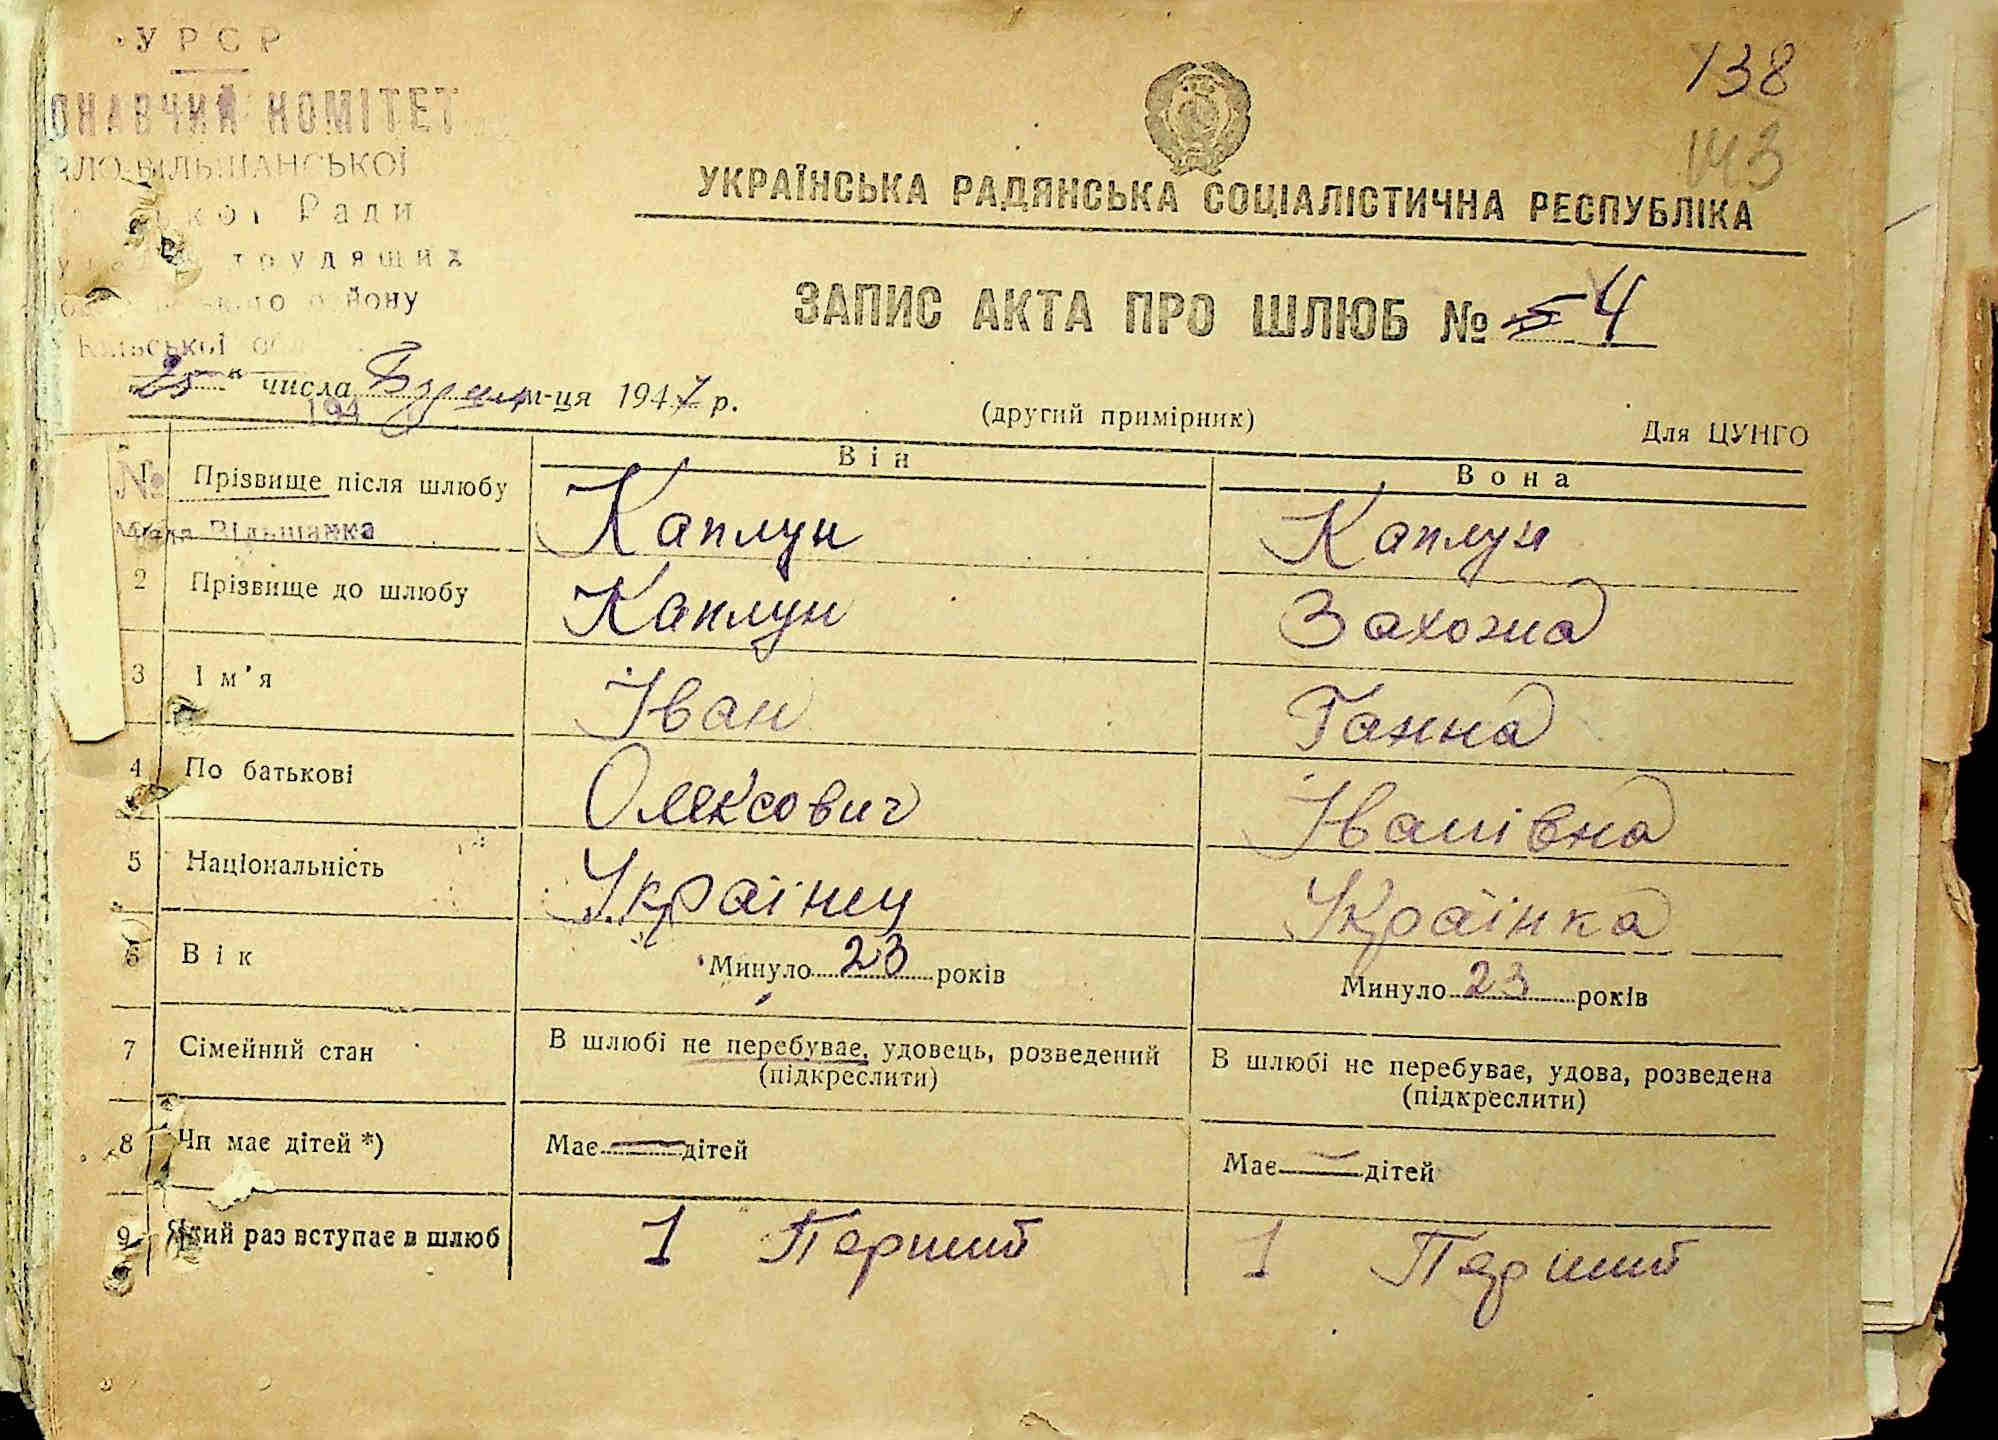 УРСР
ОНАВЧИЙ КОМІТЕТ
ЛО-ВІЛЬШАНСЬКОЇ
Ради
трудящих
району
138
143
УКРАЇНСЬКА РАДЯНСЬКА СОЦІАЛІСТИЧНА РЕСПУБЛІКА
ЗАПИС АКТА ПРО ШЛЮБ № 4
25 " числа м-ця 1947 р.
194
(другий примірник)
Для ЦУНГО
Він Вона
№ Прізвище після шлюбу Каплун Каплун
Мала Вільшанка
2 Прізвище до шлюбу Каплун Захожа
3 Ім'я Іван Ганна
4 По батькові Олексович Іванівна
5 Національність Українец Українка
6 Вік Минуло 23 років Минуло 23 років
7 Сімейний стан В шлюбі не перебуває, удовець, розведений (підкреслити) В шлюбі не перебуває, удова, розведена (підкреслити)
8 Чи має дітей *) Має — дітей Має — дітей
9 Який раз вступає в шлюб 1 Перший 1 Перший